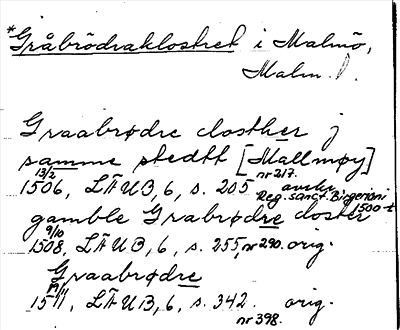 *Gråbrödraklostret i Malmö,
Malm.
Graabrødre closther j
samme stedtt [Mallmøy]
13/2 nr 217.
1506, LÄUB, 6, s. 205 avskr.
Reg. sanct. Birgerioni 1500-t
gamble Grabrødre closter
9/10
1508, LÄUB, 6, s. 255, nr 290. orig.
Graabrødre
1511, LÄUB, 6, s. 342. orig.
nr 398.